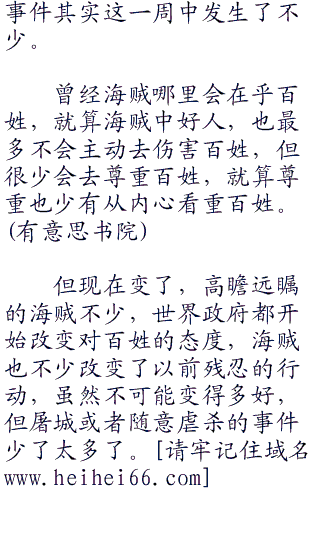 事件其实这一周中发生了不
少。
曾经海贼哪里会在乎百
姓，就算海贼中好人，也最
多不会主动去伤害百姓，但
很少会去尊重百姓，就算尊
重也少有从内心看重百姓。
(有意思书院)
但现在变了，高瞻远瞩
的海贼不少，世界政府都开
始改变对百姓的态度，海贼
也不少改变了以前残忍的行
动，虽然不可能变得多好，
但屠城或者随意虐杀的事件
少了太多了。[请牢记住域名
www.heihei66.com]